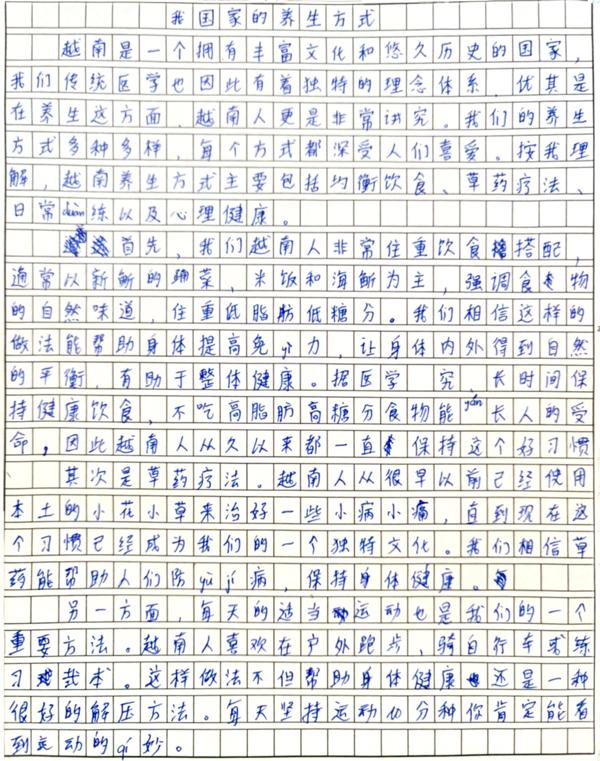 我国家的养生方式
越南是一个拥有丰富文化和悠久历史的国家，
我们传统医学也因此有着独特的理念体系，优其是
在养生这方面，越南人更是非常讲究。我们的养生
方式多种多样，每个方式都深受人们喜爱。按我理
解，越南养生方式主要包括均衡饮食、草药疗法、
日常duàn练以及心理健康。
首先，我们越南人非常住重饮食搭配，
通常以新鲜的蔬菜，米饭和海鲜为主，强调食物
的自然味道，住重低脂肪低糖分。我们相信这样的
做法能帮助身体提高免yì力，让身体内外得到自然
的平衡，有助于整体健康。招医学 究 长时间保
持健康饮食，不吃高脂肪高糖分食物能yán长人的受
命，因此越南人从久以来都一直保持这个好习惯
其次是草药疗法。越南人从很早以前已经使用
本土的小花小草来治好一些小病小痛，直到现在这
个习惯已经成为我们的一个独特文化。我们相信草
药能帮助人们防yù jí病，保持身体健康。
另一方面，每天的适当运动也是我们的一个
重要方法。越南人喜欢在户外跑步，骑自行车或练
习武术。这样做法不但帮助身体健康还是一种
很好的解压方法。每天坚持运动10分种你肯定能看
到运动的qí妙。